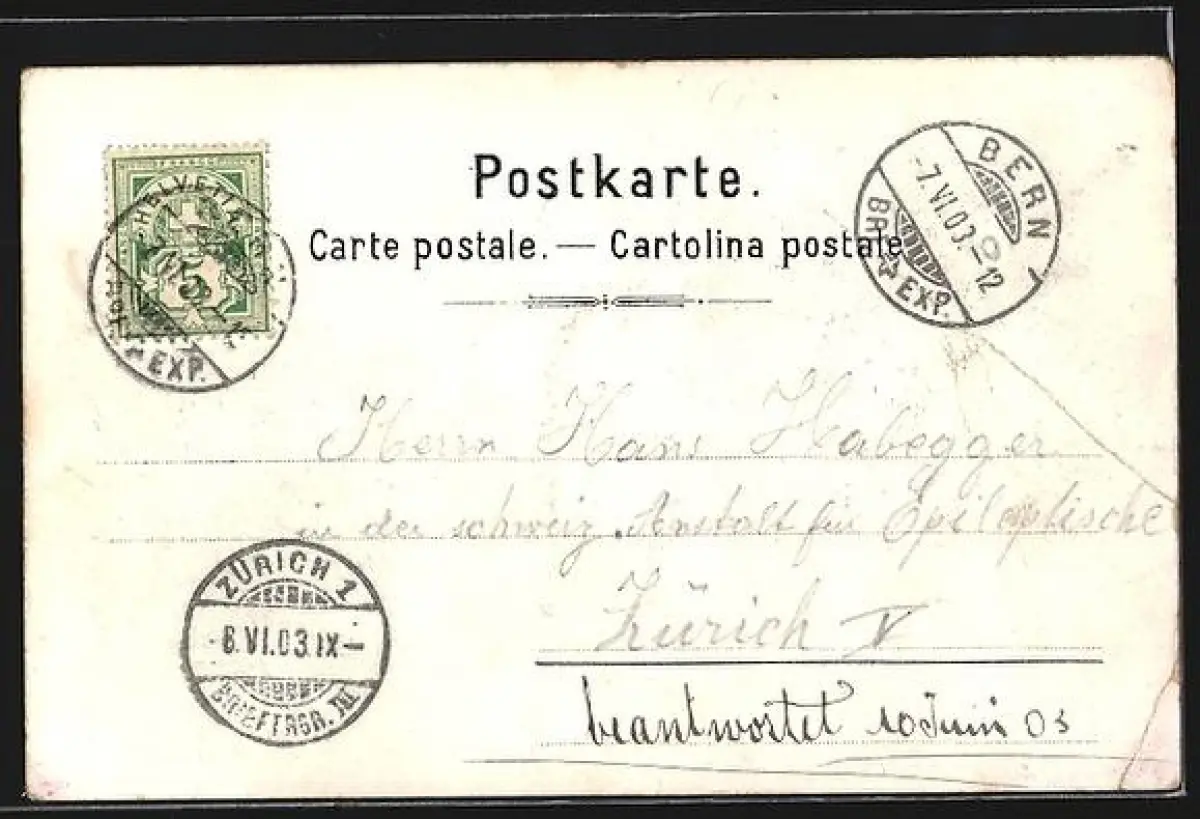 HELVETIA
5
EXP.
Postkarte.
Carte postale. — Cartolina postale
BERN
-7.VI.03.-12
BR. EXP.
Herrn Hans Habegger
in der schweiz. Anstalt für Epileptische
Zürich V
ZÜRICH 1
8.VI.03.IX-
BRIEFTRGR. III
beantwortet 10 Juni 03